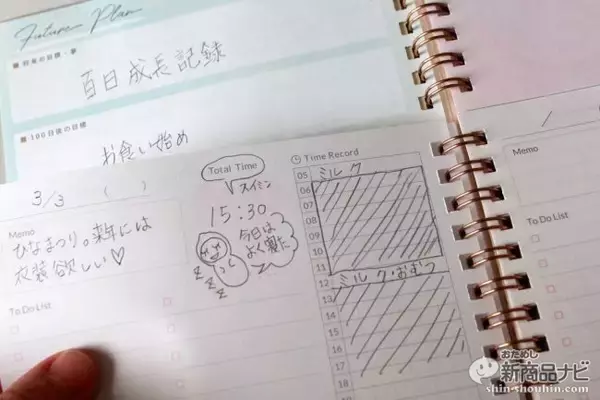 Future Plan
■ 将来の目標・夢
百日成長記録
■ 100日後の目標
お食い始め
3/3 ( )
Memo
ひなまつり。来年には
衣装欲しい♡
To Do List
Total Time
スイミン
15:30
今日は
よく寝た
z
z
z
Time Record
05 ミルク
06
07
08
09
10
11
12 ミルク・おむつ
13
14
15
16
17
18
/
Memo
To Do List
おためし
新商品ナビ
shin-shouhin.com